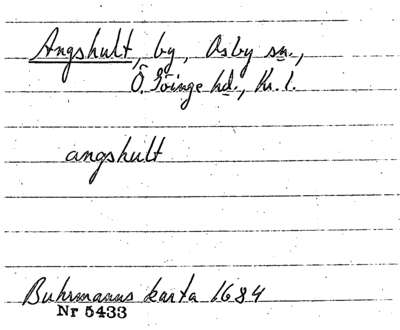 Angshult, by, Osby sn.,
Ö. Göinge hd., Kr. l.
angshult
Buhrmanns karta 1684
Nr 5433